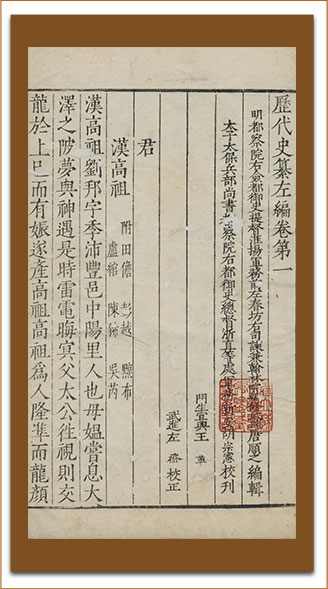 歷代史纂左編卷第一
明都察院右僉都御史提督淮揚軍務前左春坊右司諫兼翰林唐順之編輯
太子太保兵部尚書察院右都御史總督浙直等處胡宗憲校刊
門生宜興王革
武進左烝校正
君
漢高祖
附田儋 彭越 黥布
盧綰 陳豨 吳芮
漢高祖劉邦字季沛豐邑中陽里人也母媼嘗息大
澤之陂夢與神遇是時雷電晦冥父太公往視則交
龍於上已而有娠遂產高祖高祖爲人隆準而龍顏